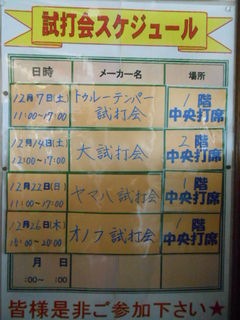 試打会スケジュール
日時 メーカー名 場所
12月7日(土) トゥルーテンパー 1階
11:00~17:00 試打会 中央打席
12月14日(土) 大試打会 2階
12:00~17:00 中央打席
12月22日(日) ヤマハ試打会 1階
11:00~17:00 中央打席
12月26日(木) オノフ試打会 1階
:00~20:00 中央打席
月 日
:00~ :00
皆様是非ご参加下さい★